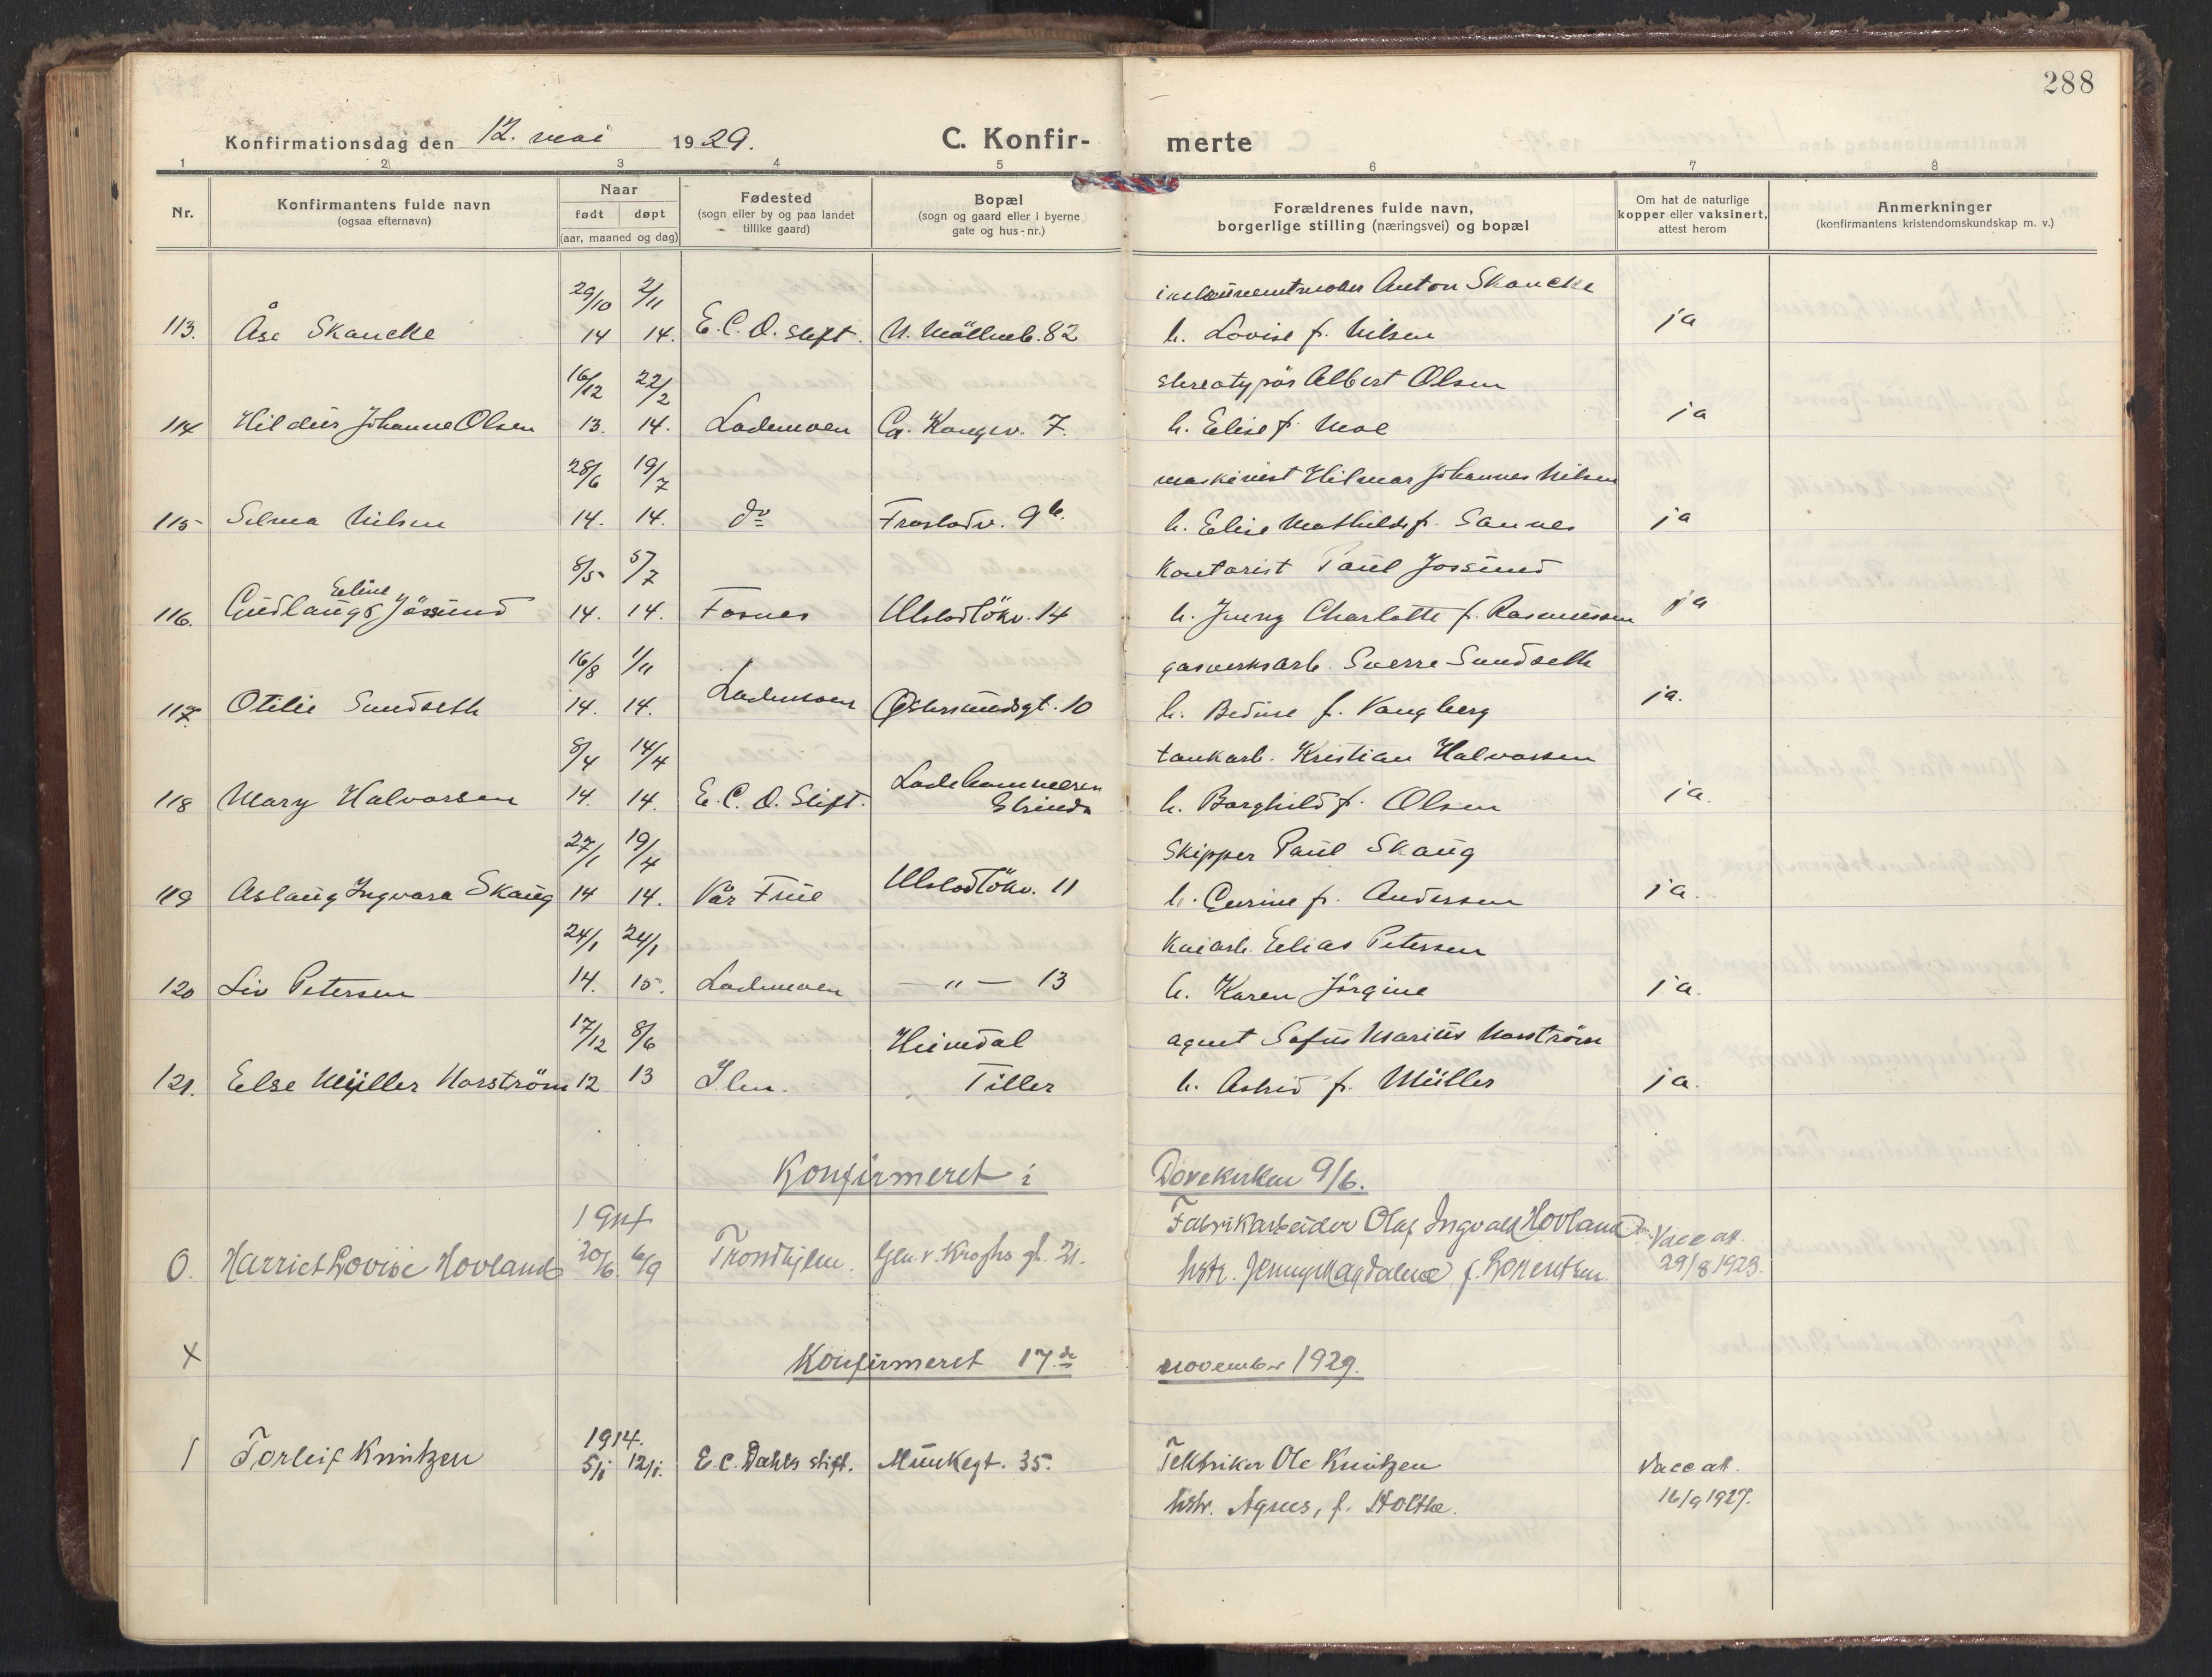 288
Konfirmationsdag den 12. mai 1929.
C. Konfir-
merte
1 2 3 4 5 6 7 8
Nr.
Konfirmantens fulde navn
(ogsaa efternavn)
Naar
født døpt
(aar, maaned og dag)
Fødested
(sogn eller by og paa landet
tillike gaard)
Bopæl
(sogn og gaard eller i byerne
gate og hus-nr.)
Forældrenes fulde navn,
borgerlige stilling (næringsvei) og bopæl
Om hat de naturlige
kopper eller vaksinert,
attest herom
Anmerkninger
(konfirmantens kristendomskundskap m. v.)
29/10 2/11 Anton Skancke
113. Åse Skancke 14 14. E. C. D. stift. N. Möllenb. 82 h. Lovise f. Nilsen ja
16/12 22/2 stereotypör Albert Olsen
114 Hildur Johanne Olsen 13. 14. Lademoen 7. h. Elise f. Moe ja
28/6 19/7 maskinist Hilmar Johannes Nilsen
115 Selma Nilsen 14. 14. do Frostadv. 9 b. h. Elise Mathilde f. Sannes ja
8/5 5/7 Kontorist Paul Jössund
Eline
116. Gudlaug Jössund 14. 14. Fosnes Ulstadlökv. 14 h. Jenny Charlotte f. Rasmussen ja
16/8 1/11 gasverksarb. Sverre Sundseth
117. Otilie Sundseth 14. 14. Lademoen Østersundsgt. 10 h. f. Vangberg ja.
8/4 14/4 tankarb. Kristian Halvorsen
Ladehammeren
118 Mary Halvorsen 14. 14. E. C. D. Stift. Strinda h. Borghild f. Olsen ja.
27/1 19/4 Skipper Paul Skaug
119 Aslaug Ingvara Skaug 14 14. Vår Frue Ulstadlökv. 11 h. f. Andersen ja.
24/1 24/1 Kaiarb. Elias Petersen
120 Liv Petersen 14. 15. Lademoen — " — 13 h. Karen Jörgine ja.
17/12 8/6 Heimdal agent Sofus Marius Norström
121. Else Müller Norström 12 13 Ilen. Tiller h. Astrid f. Müller ja.
Konfirmeret i Dovekirken 9/6.
1914 Fabrikarbeider Olaf Ingvald Hovland
0. Harriet Lovise Hovland 20/6. 6/9 Trondhjem. Gen. v. Kroghs gt. 21. hstr. Jenny Magdalene f. Lorentsen. Vacc att.
29/8 1923.
X Konfirmeret 17.de november 1929.
1914.
1 Torleif Knutzen 5/1 12/1. E. C. Dahls stift. Munkegt. 35. Tekniker Ole Knutzen Vacc att.
hstr. Agnes, f. Holthe. 16/9 1927.